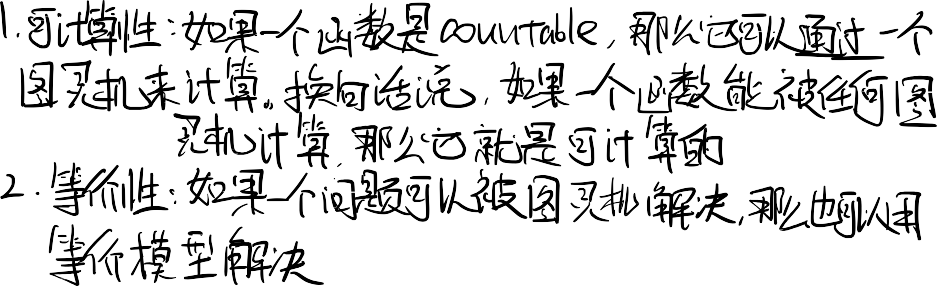 1.可计算性:如果一个函数是countable,那么它可以通过一个
图灵机来计算。换句话说,如果一个函数能被任何图
灵机计算,那么它就是可计算的
2.等价性:如果一个问题可以被图灵机解决,那么也可以用
等价模型解决